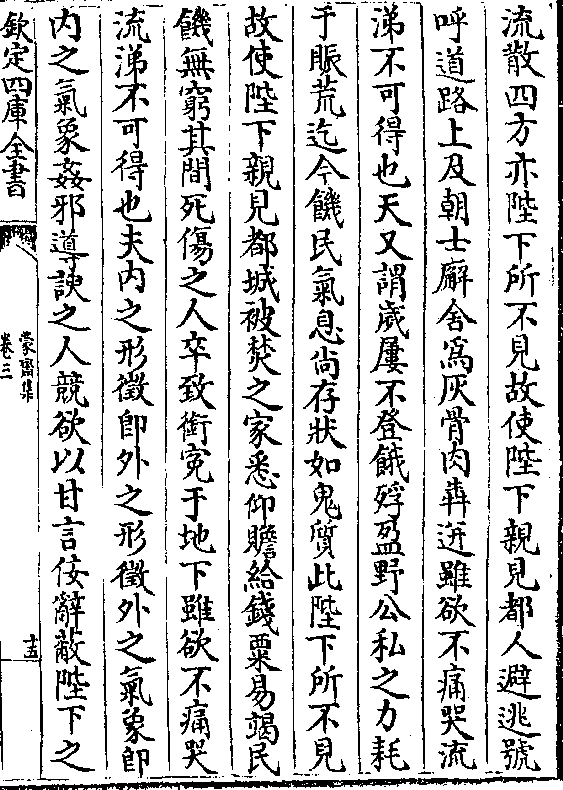 流散四方亦陛下所不見故使陛下親見都人避逃號
呼道路上及朝士廨舍爲灰骨肉犇迸雖欲不痛哭流
涕不可得也天又謂歲屢不登餓殍盈野公私之力耗
于賑荒迄今饑民氣息尚存狀如鬼質此陛下所不見
故使陛下親見都城被焚之家悉仰贍給錢粟易竭民
饑無窮其間死傷之人卒致銜寃于地下雖欲不痛哭
流涕不可得也夫内之形徵即外之形徵外之氣象即
内之氣象姦邪導諛之人競欲以甘言佞辭蔽陛下之
欽定四庫全書
蒙齋集
卷三
十五